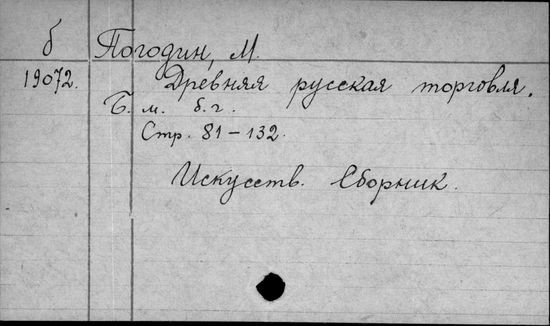 б Погодин, М.
19072. Древняя русская торговля.
Б. м. б. г.
Стр. 81-132.
Искусств. Сборник.